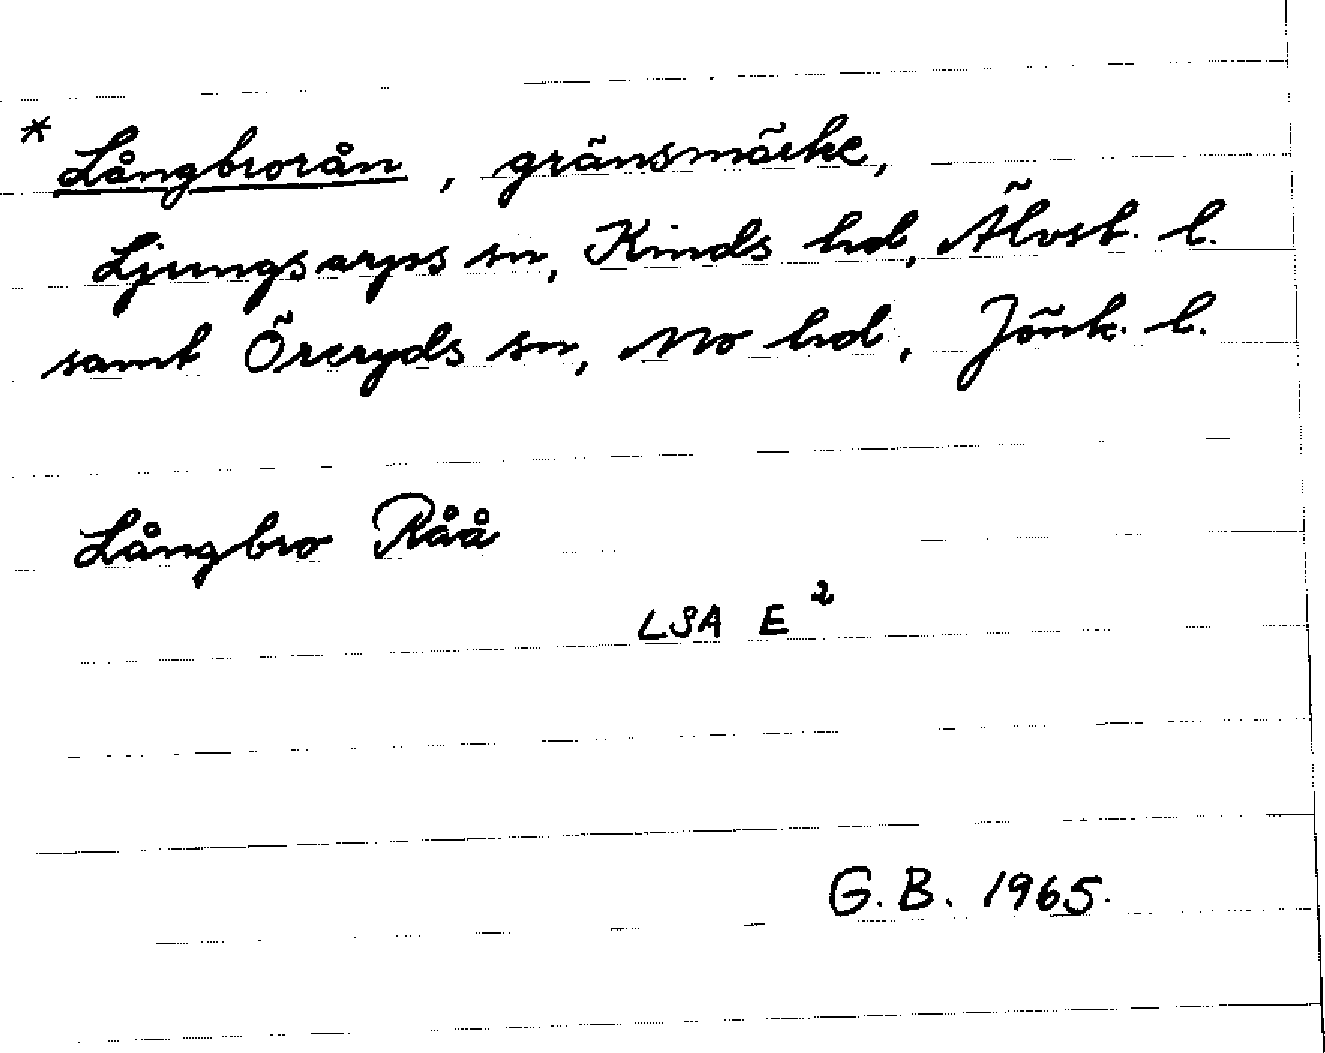 * Långbrorån, gränsmärke,
Ljungsarps sn, Kinds hd, Älvsb. l.
samt Öreryds sn, Mo hd, Jönk. l.
Långbro Råå
LSA E²
G.B. 1965.